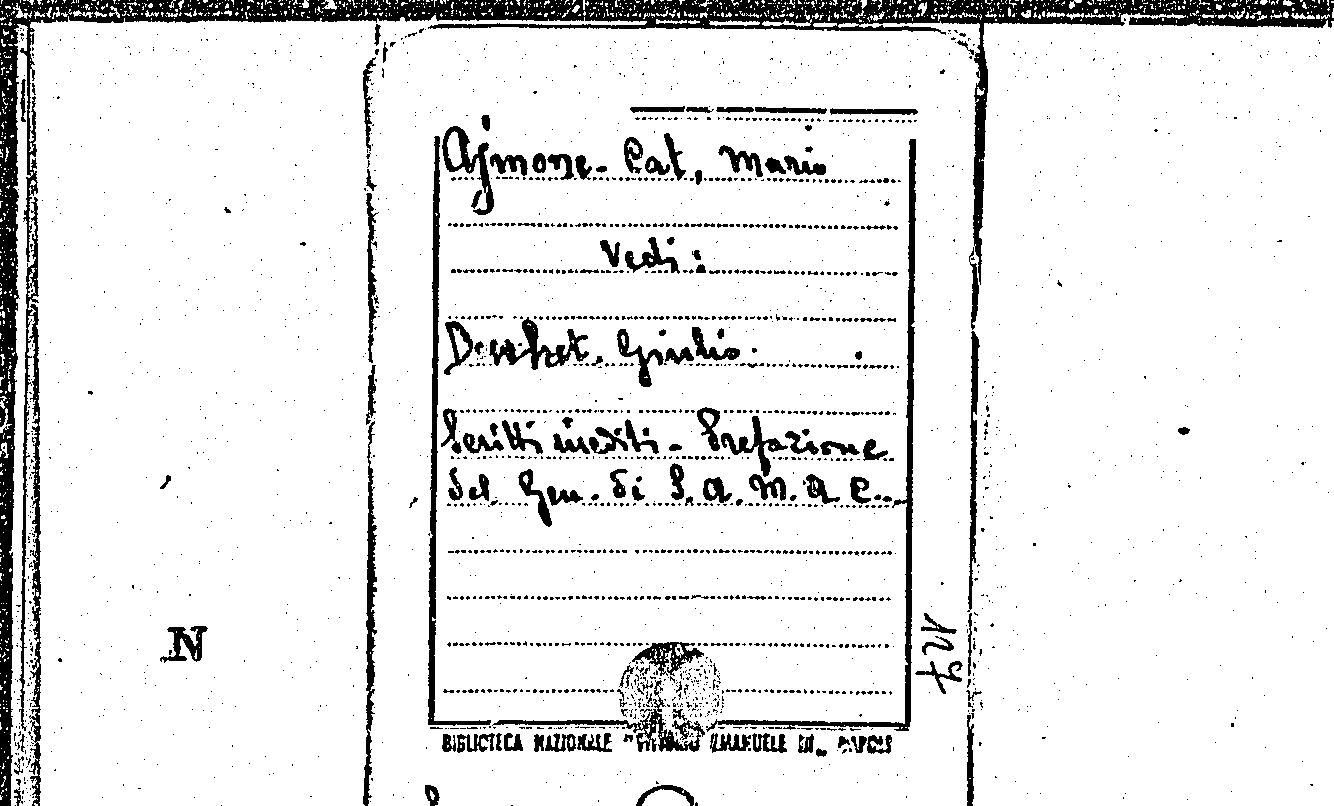 Ajmone-Cat, Mario
Vedi:
Douhet. Giulio.
Scritti inediti - Prefazione
del Gen. di S. A. M. A. C.
N
127
BIBLIOTECA NAZIONALE "VITTORIO EMANUELE III„ NAPOLI